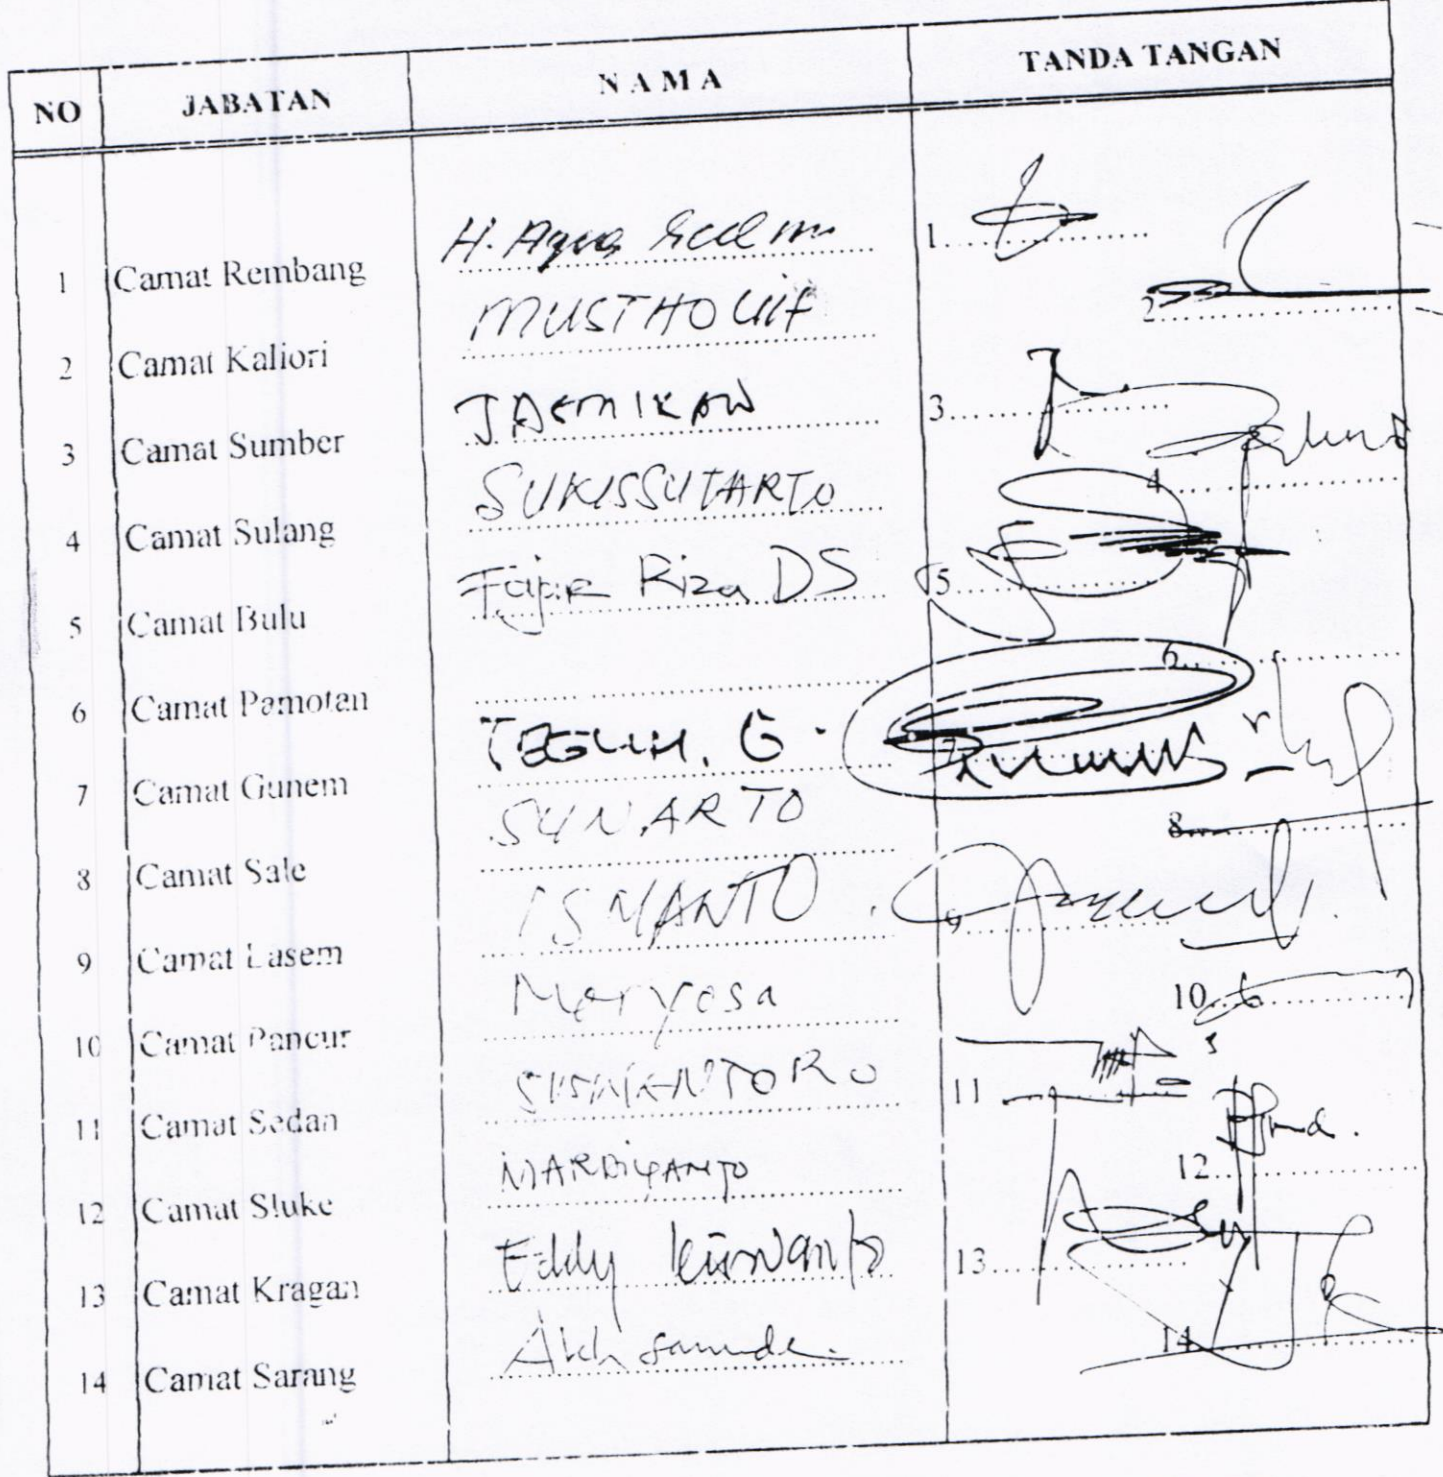 NO JABATAN N A M A TANDA TANGAN
1 Camat Rembang H. Agus 1
2 Camat Kaliori MUSTHOLIH 2
3 Camat Sumber JASMIKAN 3
4 Camat Sulang SUKISSUTARTO 4
5 Camat Bulu Fajar Riza DS 5
6 Camat Pamotan 6
7 Camat Gunem TEGUH. G. 7
8 Camat Sale SUNARTO 8
9 Camat Lasem ISMANTO 9
10 Camat Pancur Meryosa 10
11 Camat Sedan SISWANTORO 11
12 Camat Sluke MARDIYANTO 12
13 Camat Kragan Eddy Kiswanto 13
14 Camat Sarang Akh 14